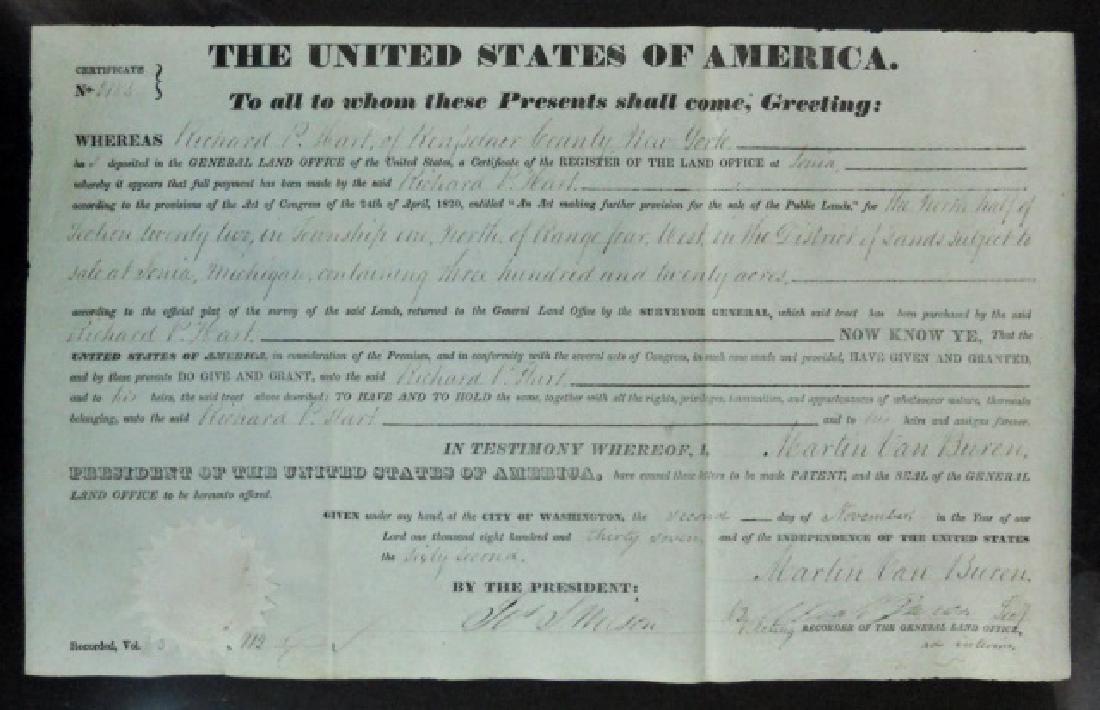 THE UNITED STATES OF AMERICA.
CERTIFICATE
No.
To all to whom these Presents shall come, Greeting:
WHEREAS Richard P. Hart, of Rensselaer County, New York
ha deposited in the GENERAL LAND OFFICE of the United States, a Certificate of the REGISTER OF THE LAND OFFICE at Ionia,
whereby it appears that full payment has been made by the said Richard P. Hart
according to the provisions of the Act of Congress of the 24th of April, 1820, entitled "An Act making further provision for the sale of the Public Lands," for the North half of
Section twenty two, in Township one, North, of Range four, West, in the District of Lands subject to
sale at Ionia, Michigan, containing three hundred and twenty acres,
according to the official plat of the survey of the said Lands, returned to the General Land Office by the SURVEYOR GENERAL, which said tract has been purchased by the said
Richard P. Hart NOW KNOW YE, That the
UNITED STATES OF AMERICA, in consideration of the Premises, and in conformity with the several acts of Congress, in such case made and provided, HAVE GIVEN AND GRANTED,
and by these presents DO GIVE AND GRANT, unto the said Richard P. Hart
and to his heirs, the said tract above described: TO HAVE AND TO HOLD the same, together with all the rights, privileges, immunities, and appurtenances of whatsoever nature, thereunto
belonging, unto the said Richard P. Hart and to his heirs and assigns forever.
IN TESTIMONY WHEREOF, I, Martin Van Buren,
PRESIDENT OF THE UNITED STATES OF AMERICA, have caused these letters to be made PATENT, and the SEAL of the GENERAL
LAND OFFICE to be hereunto affixed.
GIVEN under my hand, at the CITY OF WASHINGTON, the second day of November in the Year of our
Lord one thousand eight hundred and thirty seven and of the INDEPENDENCE OF THE UNITED STATES
the sixty second.
Martin Van Buren.
BY THE PRESIDENT:
By Sec'y
Acting RECORDER OF THE GENERAL LAND OFFICE,
ad interim.
Recorded, Vol.